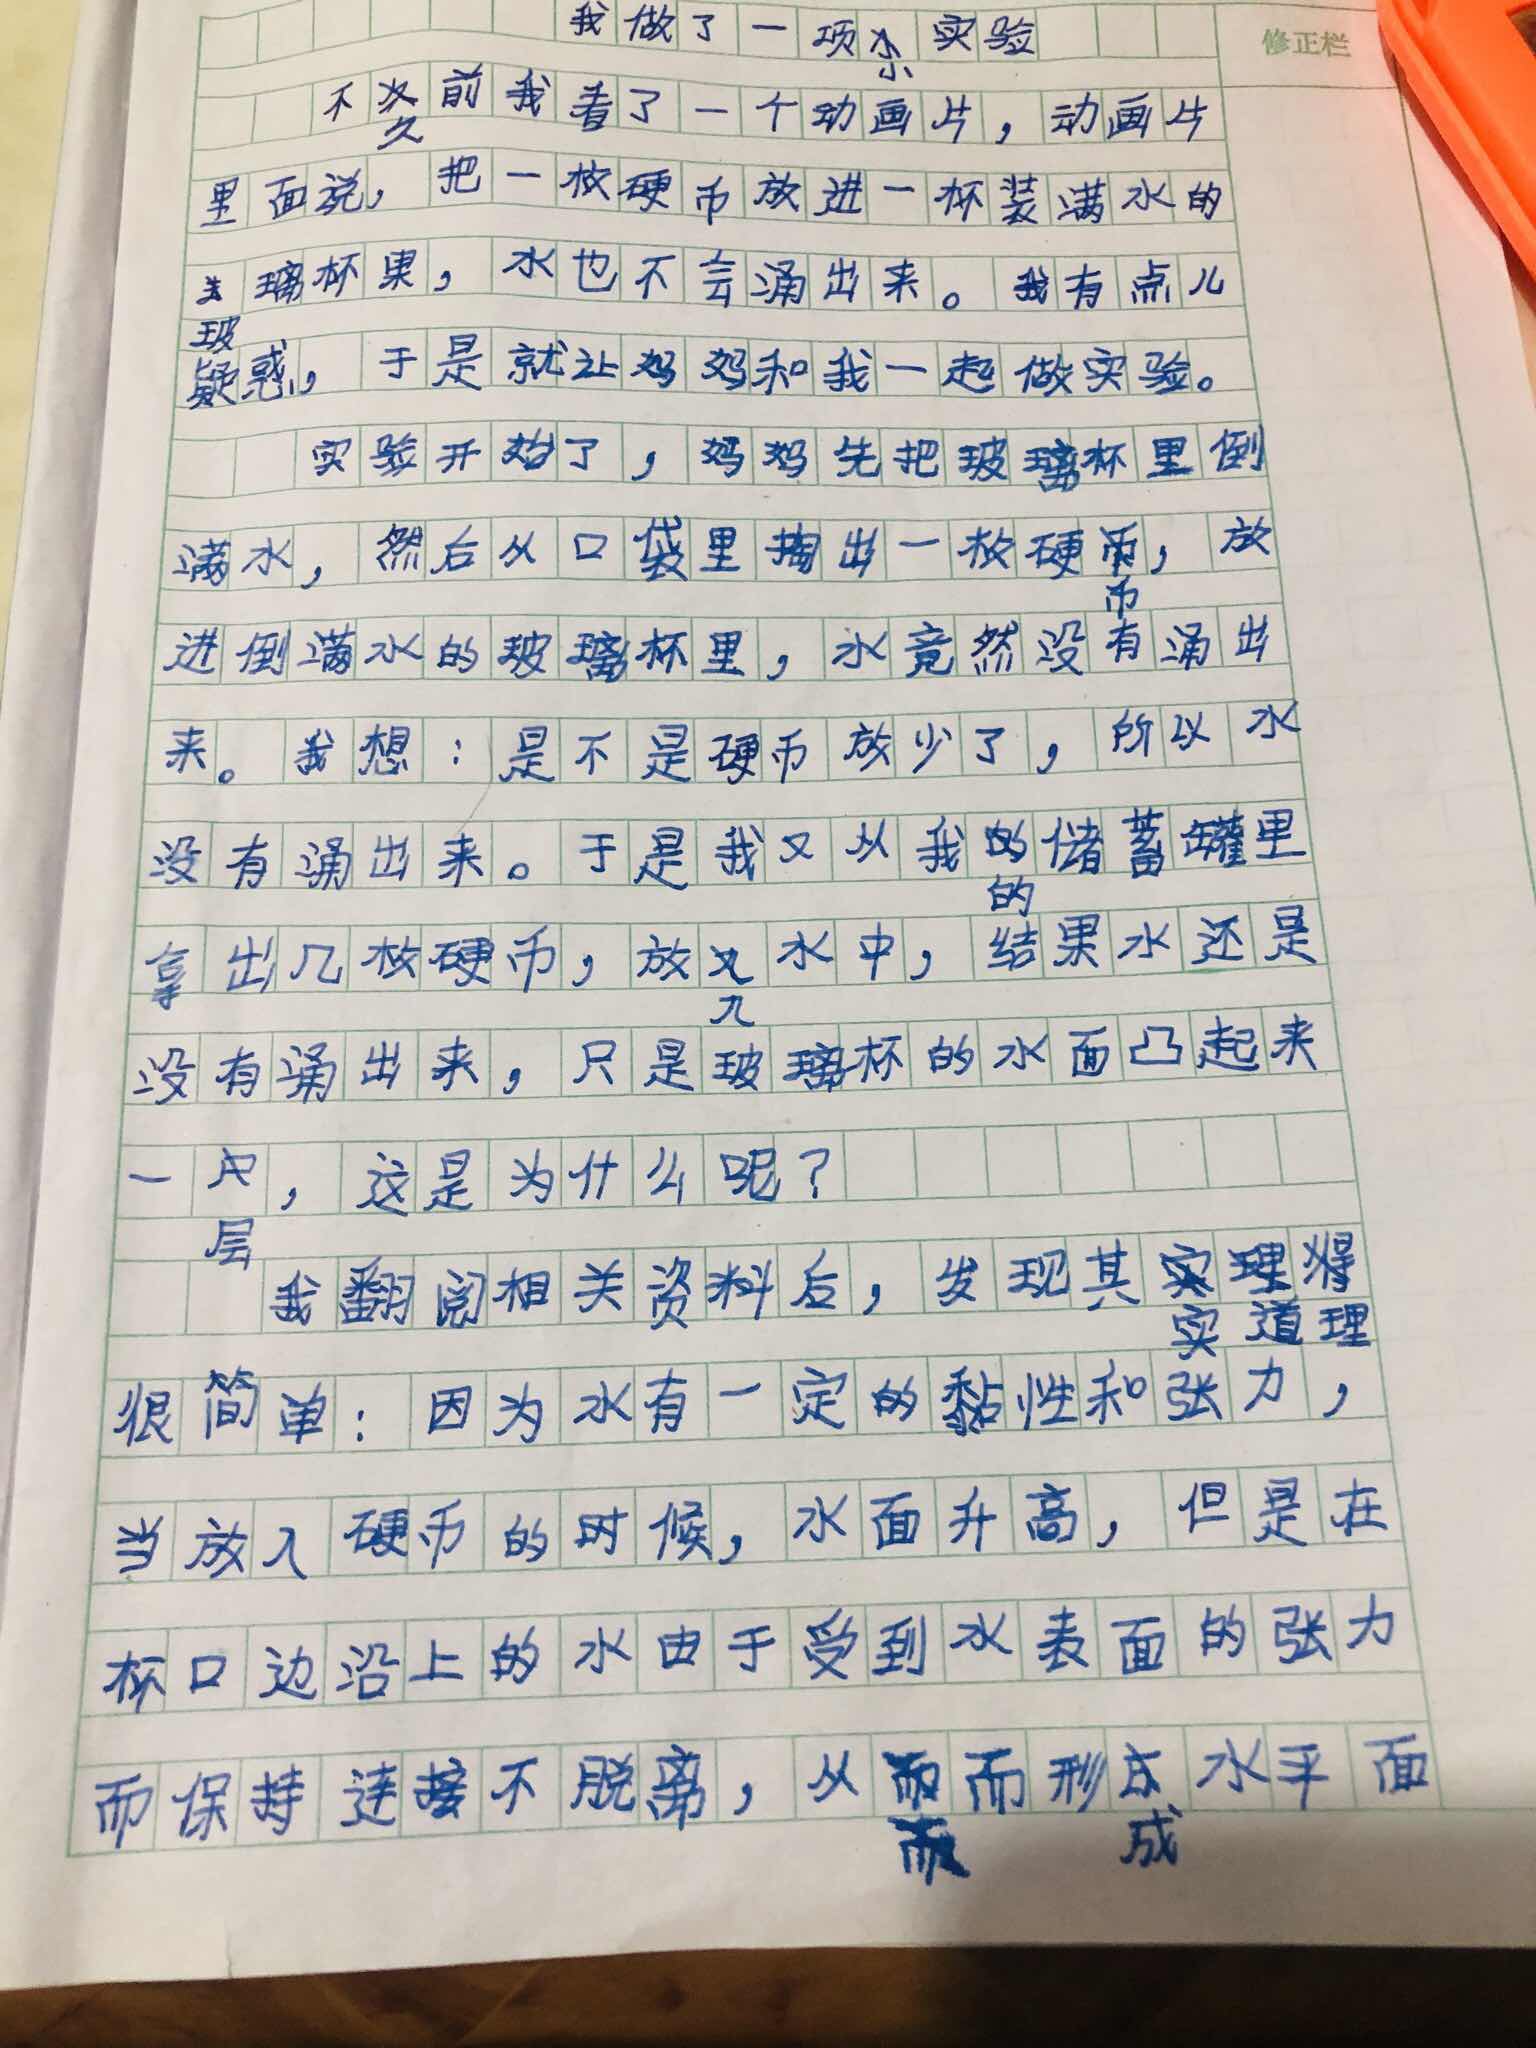 我做了一项小实验
修正栏
不久前我看了一个动画片，动画片
里面说，把一枚硬币放进一杯装满水的
玻璃杯里，水也不会涌出来。我有点儿
疑惑，于是就让妈妈和我一起做实验。
实验开始了，妈妈先把玻璃杯里倒
满水，然后从口袋里掏出一枚硬币，放
进倒满水的玻璃杯里，水竟然没有涌出
来。我想：是不是硬币放少了，所以水
没有涌出来。于是我又从我的储蓄罐里
拿出几枚硬币，放九水中，结果水还是
没有涌出来，只是玻璃杯的水面凸起来
一层，这是为什么呢？
我翻阅相关资料后，发现其实道理
很简单：因为水有一定的黏性和张力，
当放入硬币的时候，水面升高，但是在
杯口边沿上的水由于受到水表面的张力
而保持连接不脱离，从而形成水平面